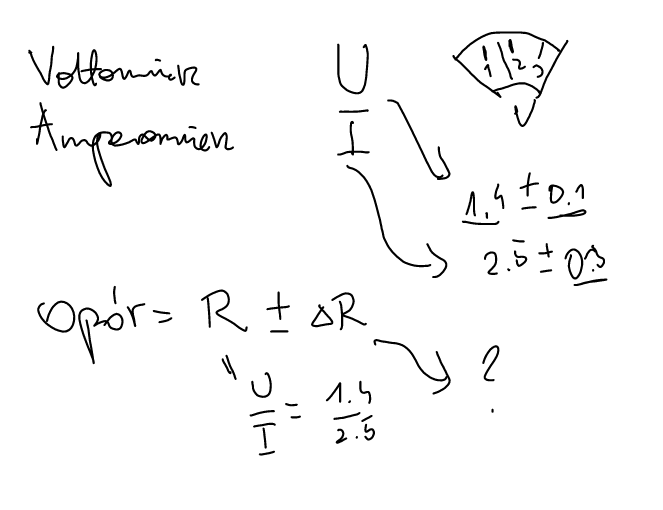 Voltomierz U
Amperomierz I
1 2 3
V
1.4 ± 0.1
2.5 ± 0.3
Opór = R ± ΔR
" U/I = 1.4/2.5
?